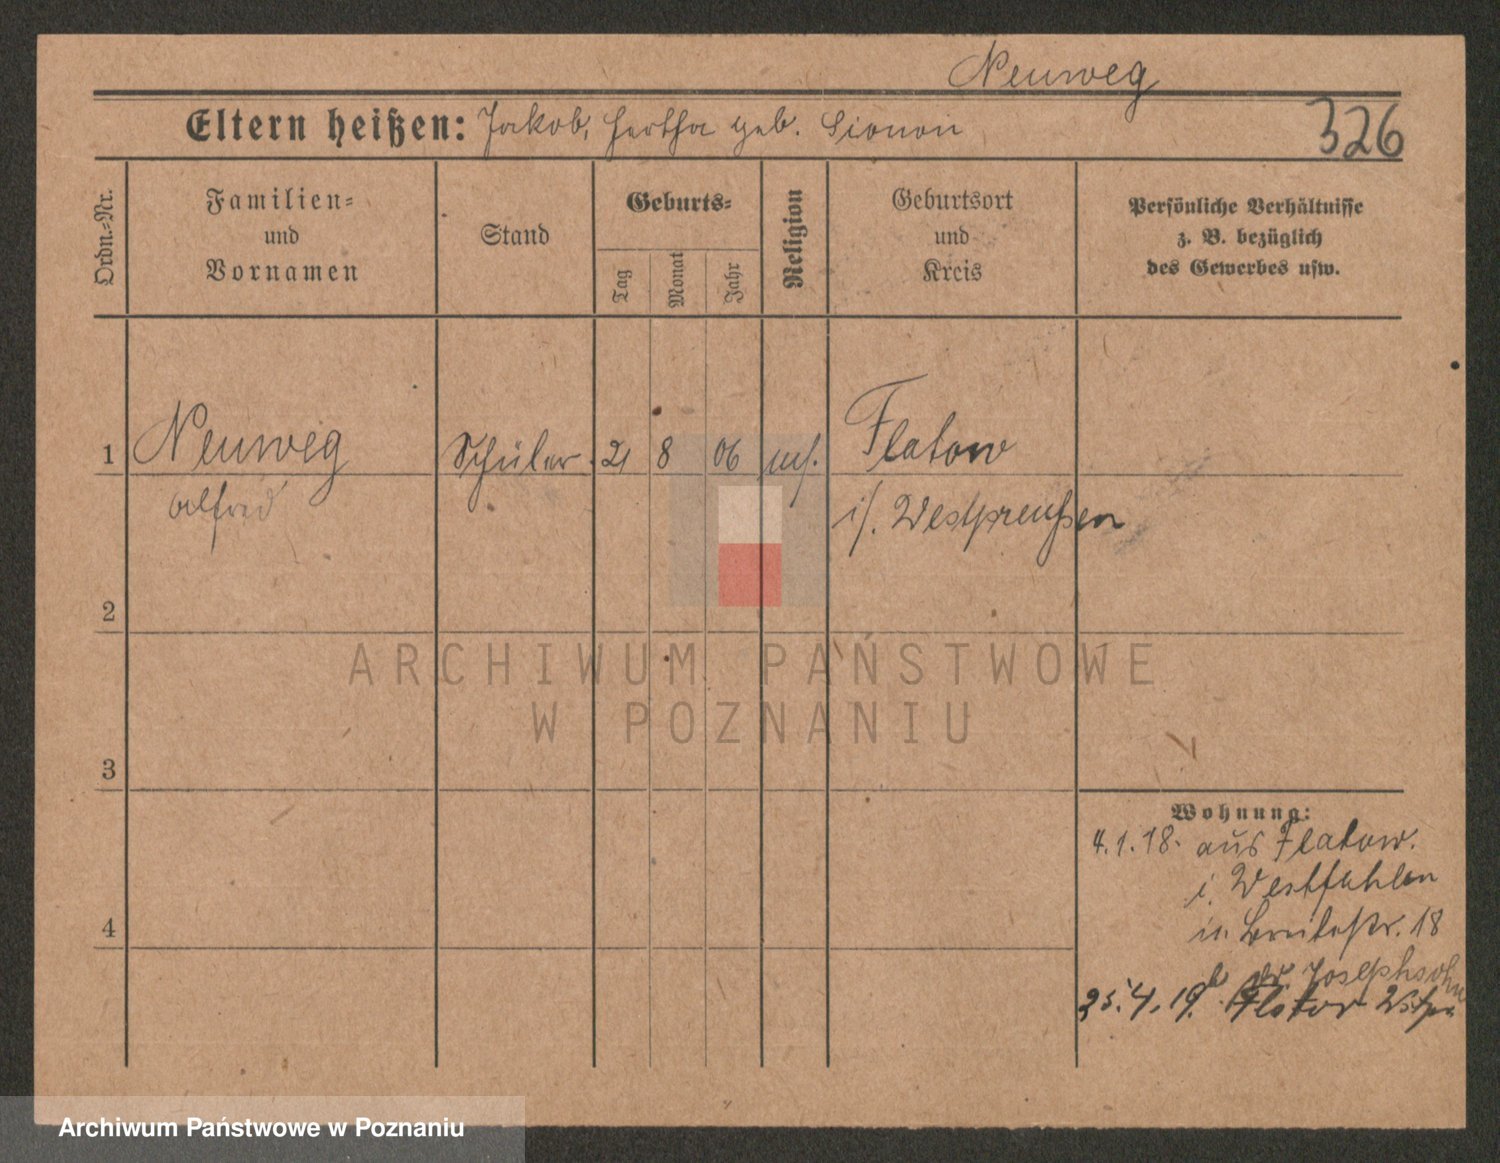 Neuweg
Eltern heißen: Jakob, Hertha geb. Simon
326
Ordn.-Nr.
Familien-
und
Vornamen
Stand
Geburts-
Tag
Monat
Jahr
Religion
Geburtsort
und
Kreis
Persönliche Verhältnisse
z. B. bezüglich
des Gewerbes usw.
1 Neuweg Schüler 21 8 06 Flatow
Alfred i/. Westpreußen
2
3
4
Wohnung:
4.1.18. aus Flatow.
i. Westfahlen
in Breitestr. 18
b Josephsohn
25.4.19. Flatow Wstpr.
ARCHIWUM PAŃSTWOWE
W POZNANIU
Archiwum Państwowe w Poznaniu